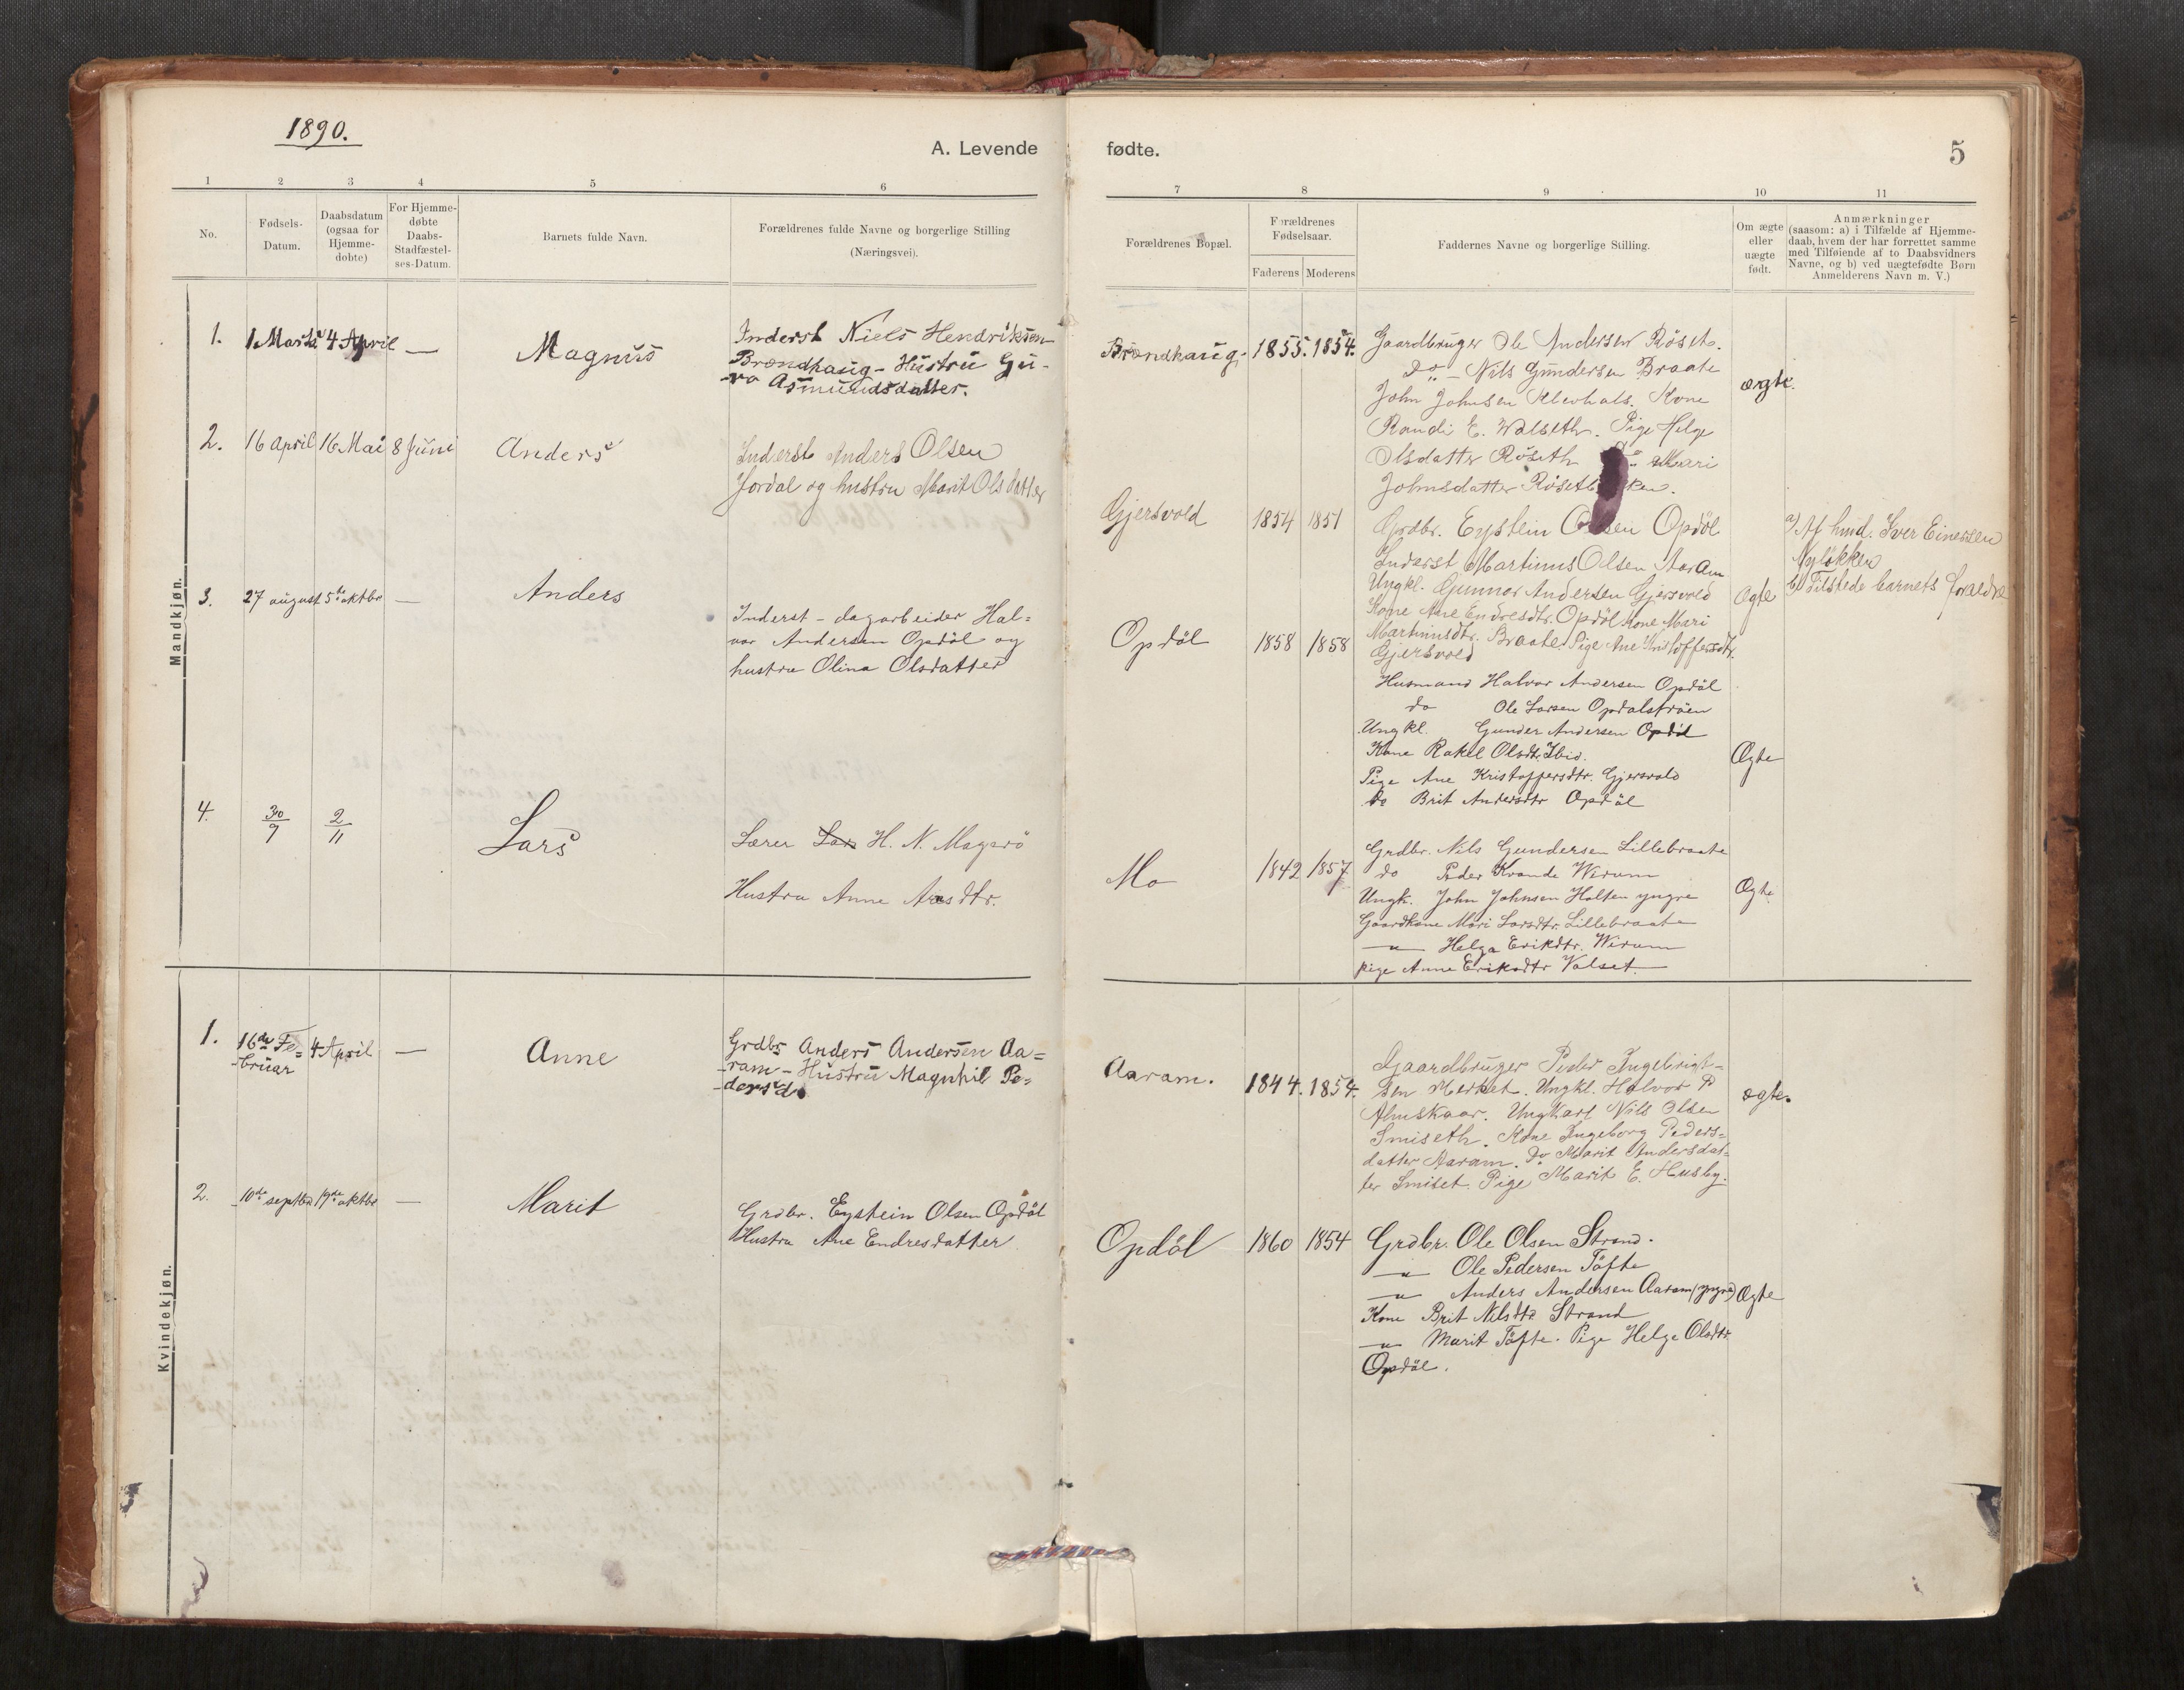 1890.
A. Levende
fødte.
5
1
2
3
4
5
6
7
8
9
10
11
No.
Fødsels-
Datum.
Daabsdatum
(ogsaa for
Hjemme-
døbte)
For Hjemme-
døbte
Daabs-
Stadfæstel-
ses-Datum.
Barnets fulde Navn.
Forældrenes fulde Navne og borgerlige Stilling
(Næringsvei).
Forældrenes Bopæl.
Forældrenes
Fødselsaar.
Faderens
Moderens
Faddernes Navne og borgerlige Stilling.
Om ægte
eller
uægte
født.
Anmærkninger
(saasom: a) i Tilfælde af Hjemme-
daab, hvem der har forrettet samme
med Tilføiende af to Daabsvidners
Navne, og b) ved uægtefødte Børn
Anmelderens Navn m. V.)
Mandkjøn.
1. 1 Marts 4 April —
Magnus
Inderst Niels Hendriksen
Brændhaug - Hustru Gu-
ro Asmundsdatter.
Brændhaug. 1855. 1854.
Gaardbruger Ole Andersen Röset.
do - Nils Gundersen Braate
John Johnsen Klevhals. Kone
Randi E. Walseth. Pige Helge
Olsdatter Röseth Mari
Johnsdatter
ægte.
2. 16 April 16 Mai 8 Juni
Anders
Inderst Anders Olsen
Jordal og hustru Marit Olsdatter
Gjersvold 1854 1851
Grdbr. Eystein Olsen Opdöl
Inderst Martinus Olsen Aaram
Ungkl. Gunnar Andersen Gjersvold
Kone Ane Endresdtr. Opdöl Kone Mari
Martinusdtr. Braaten Pige Ane Kristoffersdtr.
Gjersvold
Ægte
a) Af hmd. Iver Einersen
Nylökken
b) Tilstede barnets forældre
3. 27 august 5te oktbr —
Anders
Inderst - dagarbeider Hal-
vor Andersen Opdöl og
hustru Olina Olsdatter
Opdöl 1858 1858
Husmand Halvor Andersen Opdöl
do Ole Larsen Opdalströen
Ungkl. Gunder Andersen Opdöl
Kone Rakel Olsdtr. Ibid.
Pige Ane Kristoffersdtr. Gjersvold
do Brit Andersdtr Opdöl
Ægte
4. 30/9 2/11
Lars
Lærer Lars H. N. Magerö
Hustru Anne Arsdtr.
Mo 1842 1857
Grdbr. Nils Gundersen Lillebraate
do Peder Krande Wirum
Ungk. John Johnsen Holten yngre
Gaardkone Mari Larsdtr. Lillebraate
— " — Helga Erikdtr. Wirum
pige Anne Eriksdtr Valset
Ægte
Kvindekjøn.
1. 16de Fe-
bruar 4 April —
Anne
Grdbr Anders Andersen Aa-
ram - Hustru Magnhil Pe-
dersd
Aaram. 1844. 1854.
Gaardbruger Peder Ingebrigt-
sen Merket. Ungkl. Halvor P
Almskaar. Ungkarl Nils Olsen
Smiseth. Kone Ingeborg Peders-
datter Aaram. Do Marit Andersdat-
ter Smiset. Pige Marit E. Husby.
ægte.
2. 10de septbr 19de oktbr —
Marit
Grdbr. Eystein Olsen Opdöl
Hustru Ane Endresdatter
Opdöl 1860 1854
Grdbr. Ole Olsen Strand.
— " — Ole Pedersen Töfte
— " — Anders Andersen Aaram (yngre)
Kone Brit Nilsdtr Strand
— " — Marit Töfte. Pige Helge Olsdtr
Opdöl.
Ægte